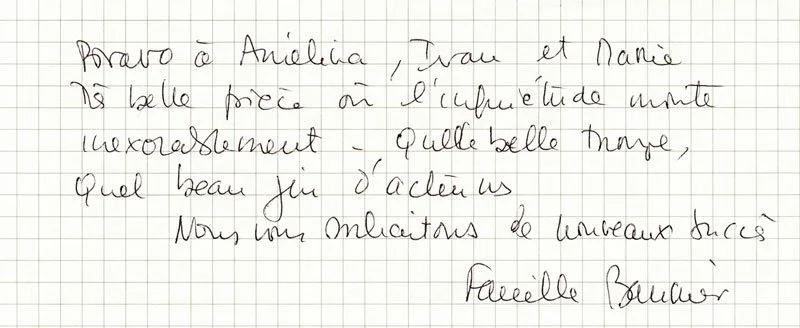 Bravo à Aniélina, Ivan et Marie
Tès belle pièce où l'inquiétude monte
inexorablement - Quelle belle troupe,
Quel beau jeu d'acteurs
Nous vous souhaitons de nouveaux succès
Famille